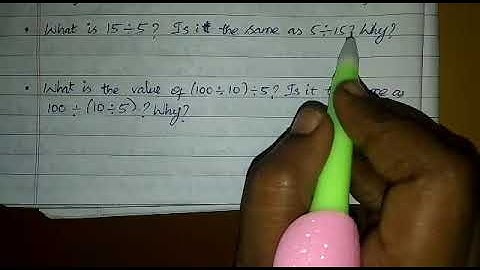 • What is 15÷5? Is it the same as 5÷15? Why?
• What is the value of (100÷10)÷5? Is it as
100 ÷ (10÷5)? Why?